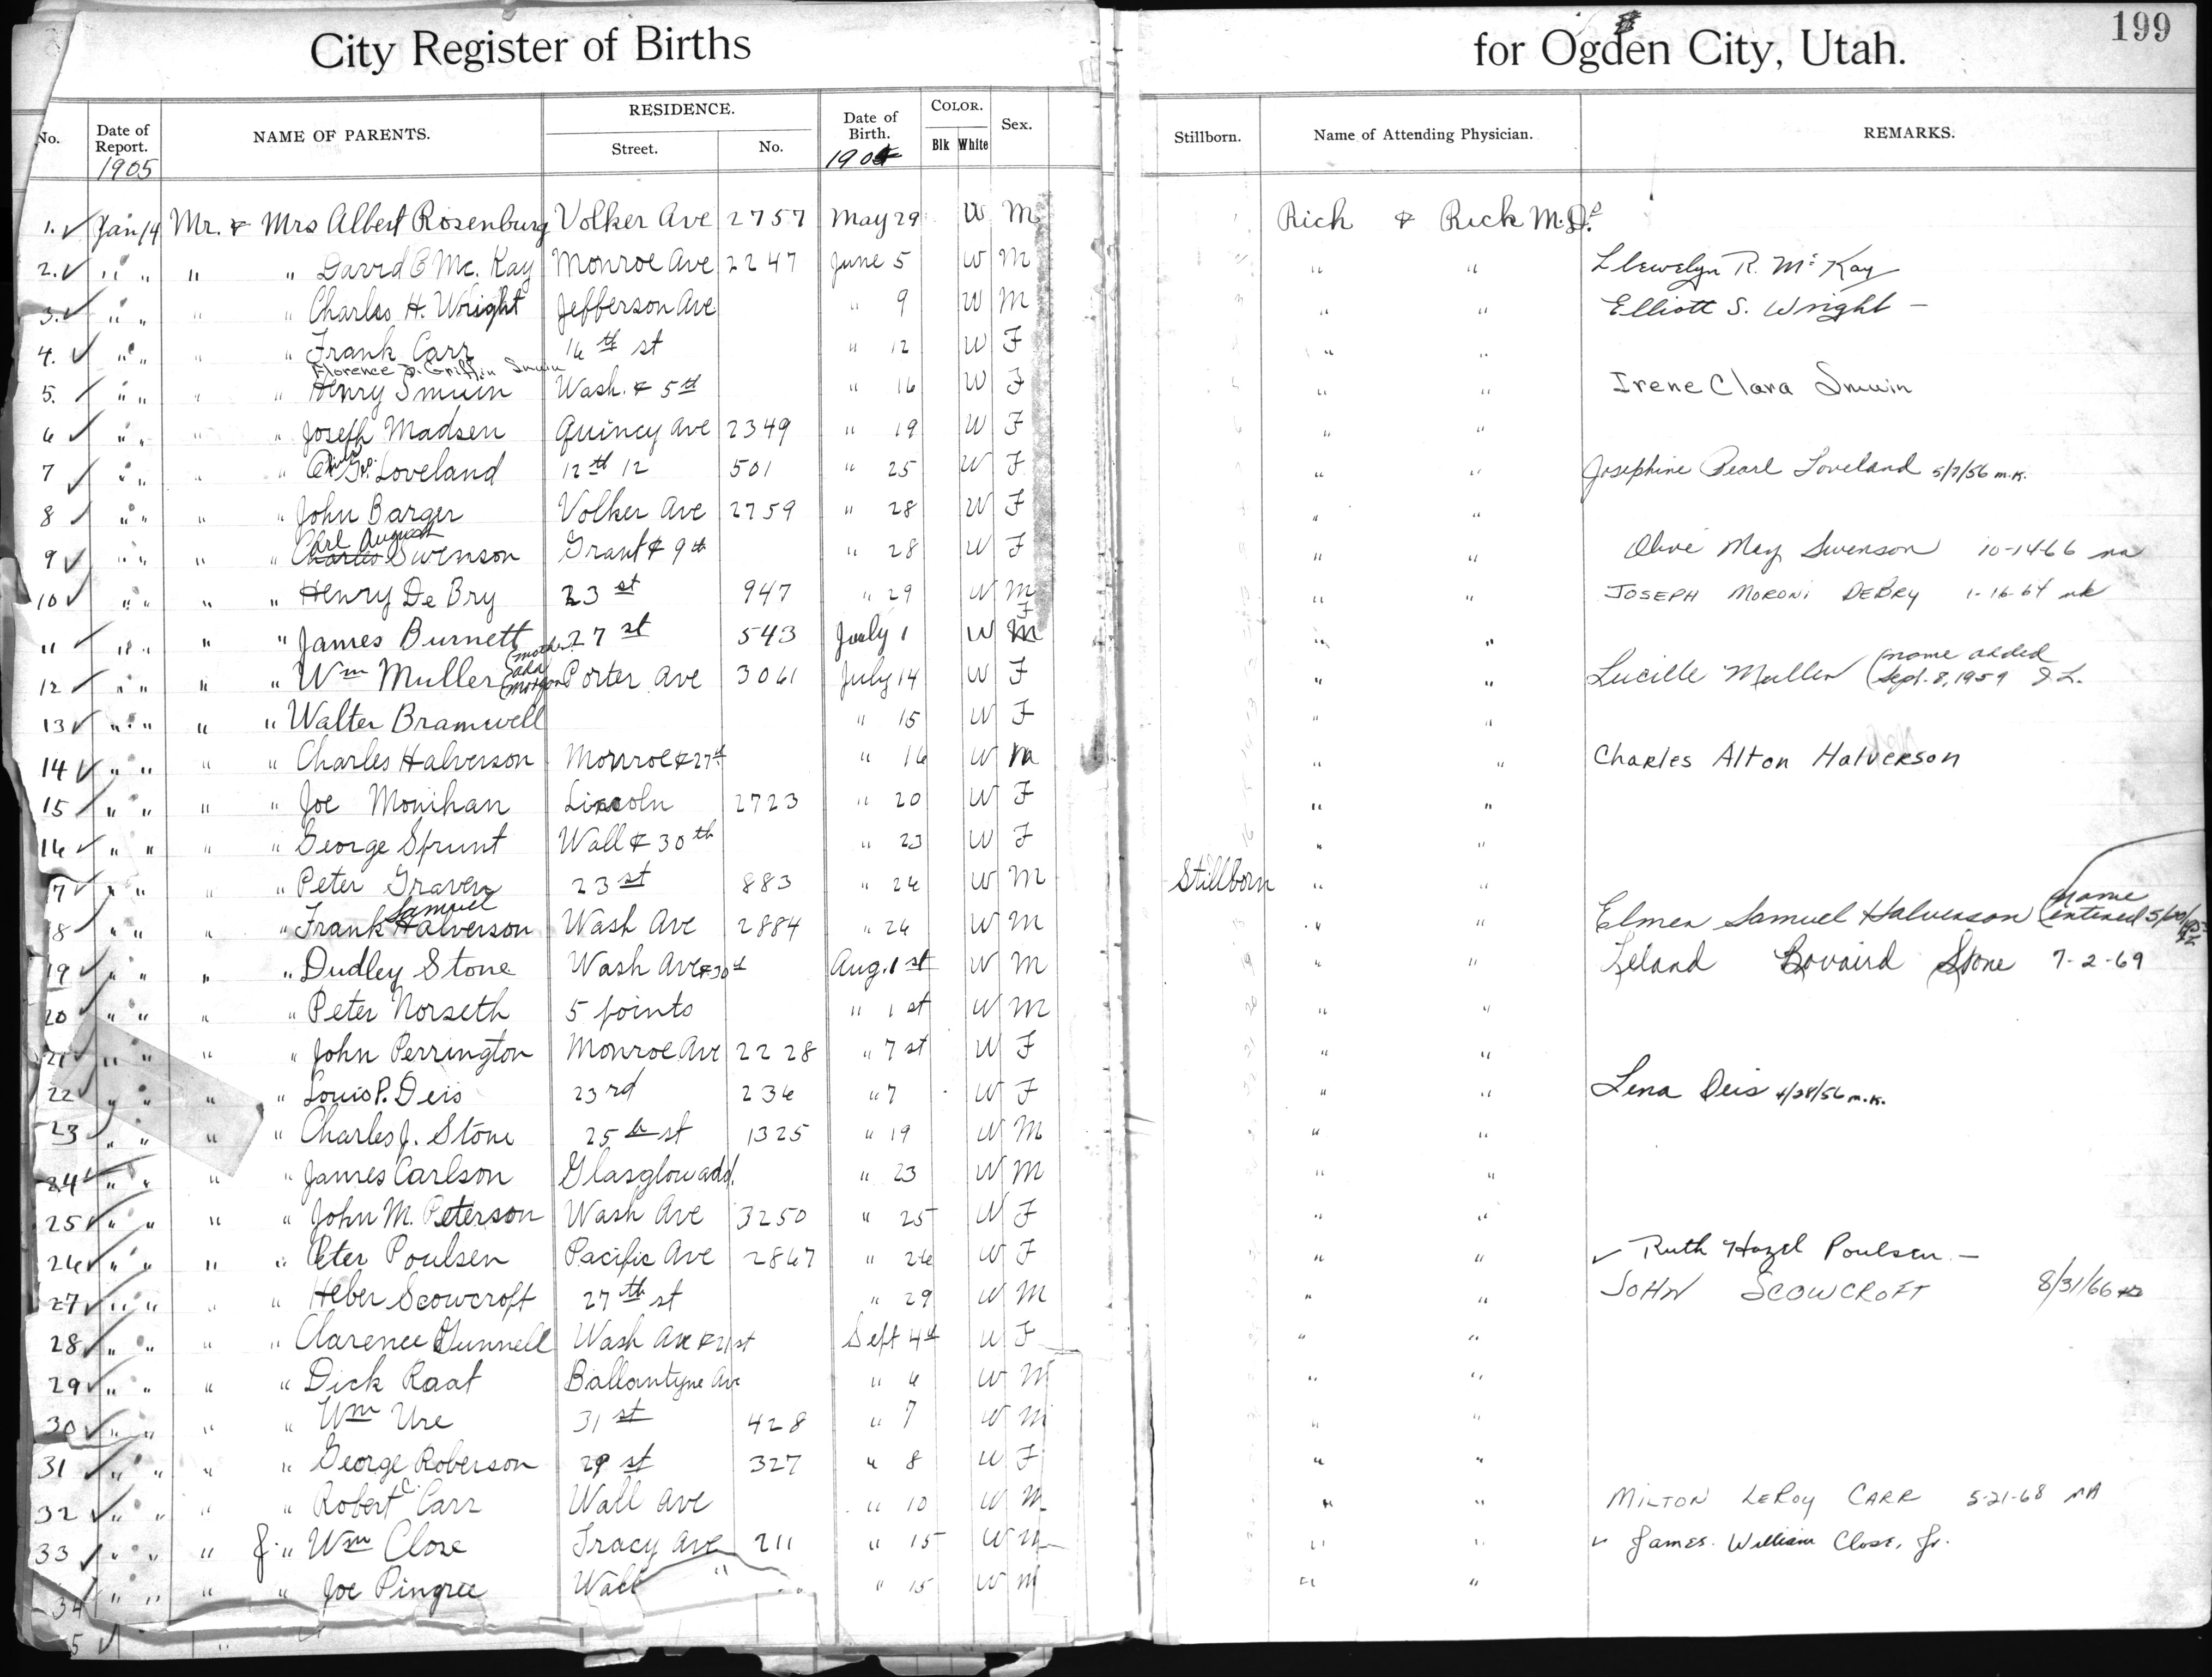 City Register of Births for Ogden City, Utah. 199
No. Date of Report. 1905 NAME OF PARENTS. RESIDENCE. Street. No. Date of Birth. 1904 COLOR. Blk White Sex. Stillborn. Name of Attending Physician. REMARKS.
1. ✓ Jan 14 Mr. & Mrs Albert Rosenburg Volker Ave 2757 May 29 W M Rich & Rich M.Ds.
2. ✓ " " " " David O Mc. Kay Monroe Ave 2247 June 5 W M " " Llewelyn R. Mc Kay
3. ✓ " " " " Charles H. Wright Jefferson Ave " 9 W M " " Elliott S. Wright –
4. ✓ " " " " Frank Carr 16 th st " 12 W F " "
Florence D. Griffin Smuin
5. / " " " " Henry Smuin Wash. & 5th " 16 W F " " Irene Clara Smuin
6 ✓ " " " " Joseph Madsen Quincy Ave 2349 " 19 W F " "
7 ✓ " " " Geo. Loveland 12th 12 501 " 25 W F " " Josephine Pearl Loveland 5/7/56 m.K.
8 ✓ " " " " John Barger Volker Ave 2759 " 28 W F " "
Carl August
9 ✓ " " " " Charles Swenson Grant & 9 th " 28 W F " " Olive May Swenson 10-14-66 na
10 ✓ " " " " Henry De Bry 23 st 947 " 29 W M " " JOSEPH MORONI DEBRY 1-16-64 mk
11 / " " " " James Burnett 27 st 543 July 1 W M F " "
12 / " " " " Wm Muller (mother Ada Morgan) Porter Ave 3061 July 14 W F " " Lucille Muller (name added Sept. 8, 1959 J.L.
13 ✓ " " " " Walter Bramwell " 15 W F " "
14 ✓ " " " " Charles Halverson Monroe & 27th " 16 W M " " Charles Alton Halverson
15 ✓ " " " " Joe Monihan Lincoln 2723 " 20 W F " "
16 ✓ " " " " George Sprunt Wall & 30 th " 23 W F " "
17 ✓ " " " " Peter Graven 23 st 883 " 26 W M Stillborn " "
Samuel
18 ✓ " " " " Frank Halverson Wash Ave 2884 " 26 W M " " Elmer Samuel Halverson (name entered
19 ✓ " " " " Dudley Stone Wash Ave & 30th Aug. 1 st W M " " Leland Bovaird Stone 7-2-69
20 ✓ " " " " Peter Norseth 5 points " 1 st W M " "
21 ✓ " " " " John Perrington Monroe Ave 2228 " 7 st W F " "
22 ✓ " " " " Louis P. Deis 23 rd 236 " 7 W F " " Lena Deis 4/28/56 m.K.
23 ✓ " " " " Charles J. Stone 25 th st 1325 " 19 W M " "
24 ✓ " " " " James Carlson Glasglow add. " 23 W M " "
25 ✓ " " " " John M. Peterson Wash Ave 3250 " 25 W F " "
26 ✓ " " " " Peter Poulsen Pacific Ave 2867 " 26 W F " " ✓ Ruth Hazel Poulsen –
27 ✓ " " " " Heber Scowcroft 27 th st " 29 W M " " JOHN SCOWCROFT 8/31/66
28 ✓ " " " " Clarence Gunnell Wash Ave & 21 st Sept 4th W F " "
29 ✓ " " " " Dick Raat Ballantyne Ave " 6 W M " "
30 ✓ " " " " Wm Ure 31 st 428 " 7 W M " "
31 ✓ " " " " George Roberson 29 st 327 " 8 W F " "
32 ✓ " " " " Robert C. Carr Wall Ave " 10 W M " " MILTON LEROY CARR 5-21-68 NA
33 ✓ " " " J. " Wm Close Tracy Ave 211 " 15 W M " " ✓ James William Close, Jr.
34 " " " " Joe Pingree Wall " " 15 W M " "
5 ✓ "